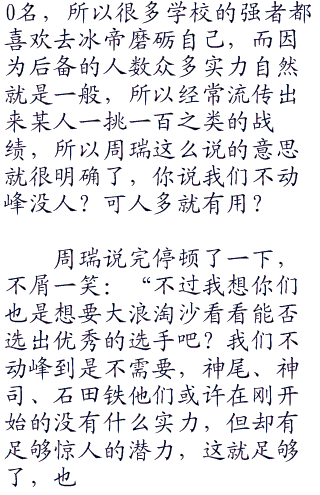 0名，所以很多学校的强者都
喜欢去冰帝磨砺自己，而因
为后备的人数众多实力自然
就是一般，所以经常流传出
来某人一挑一百之类的战
绩，所以周瑞这么说的意思
就很明确了，你说我们不动
峰没人？可人多就有用？
周瑞说完停顿了一下，
不屑一笑：“不过我想你们
也是想要大浪淘沙看看能否
选出优秀的选手吧？我们不
动峰到是不需要，神尾、神
司、石田铁他们或许在刚开
始的没有什么实力，但却有
足够惊人的潜力，这就足够
了，也